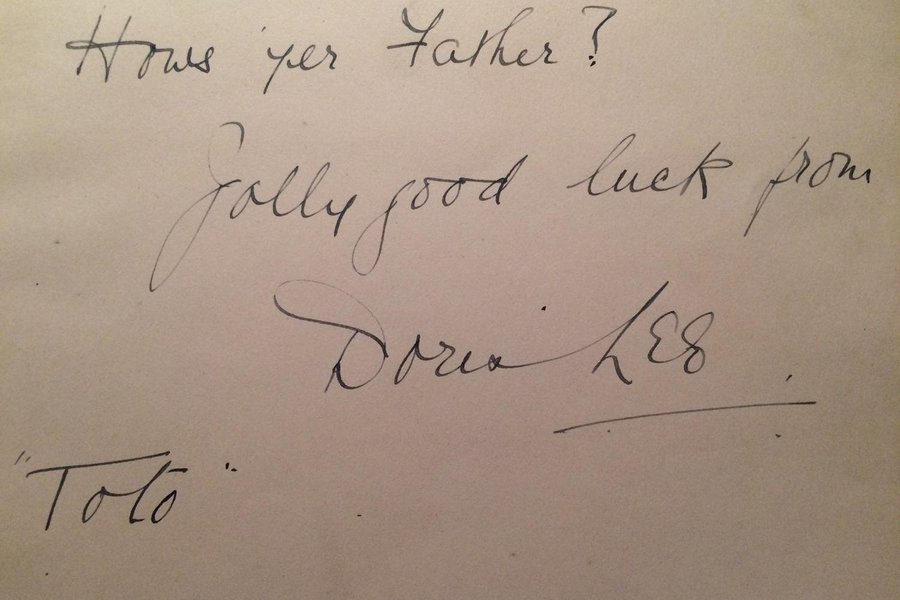 Hows 'yer Father?
Jolly good luck from
Doris Lee.
"Toto"